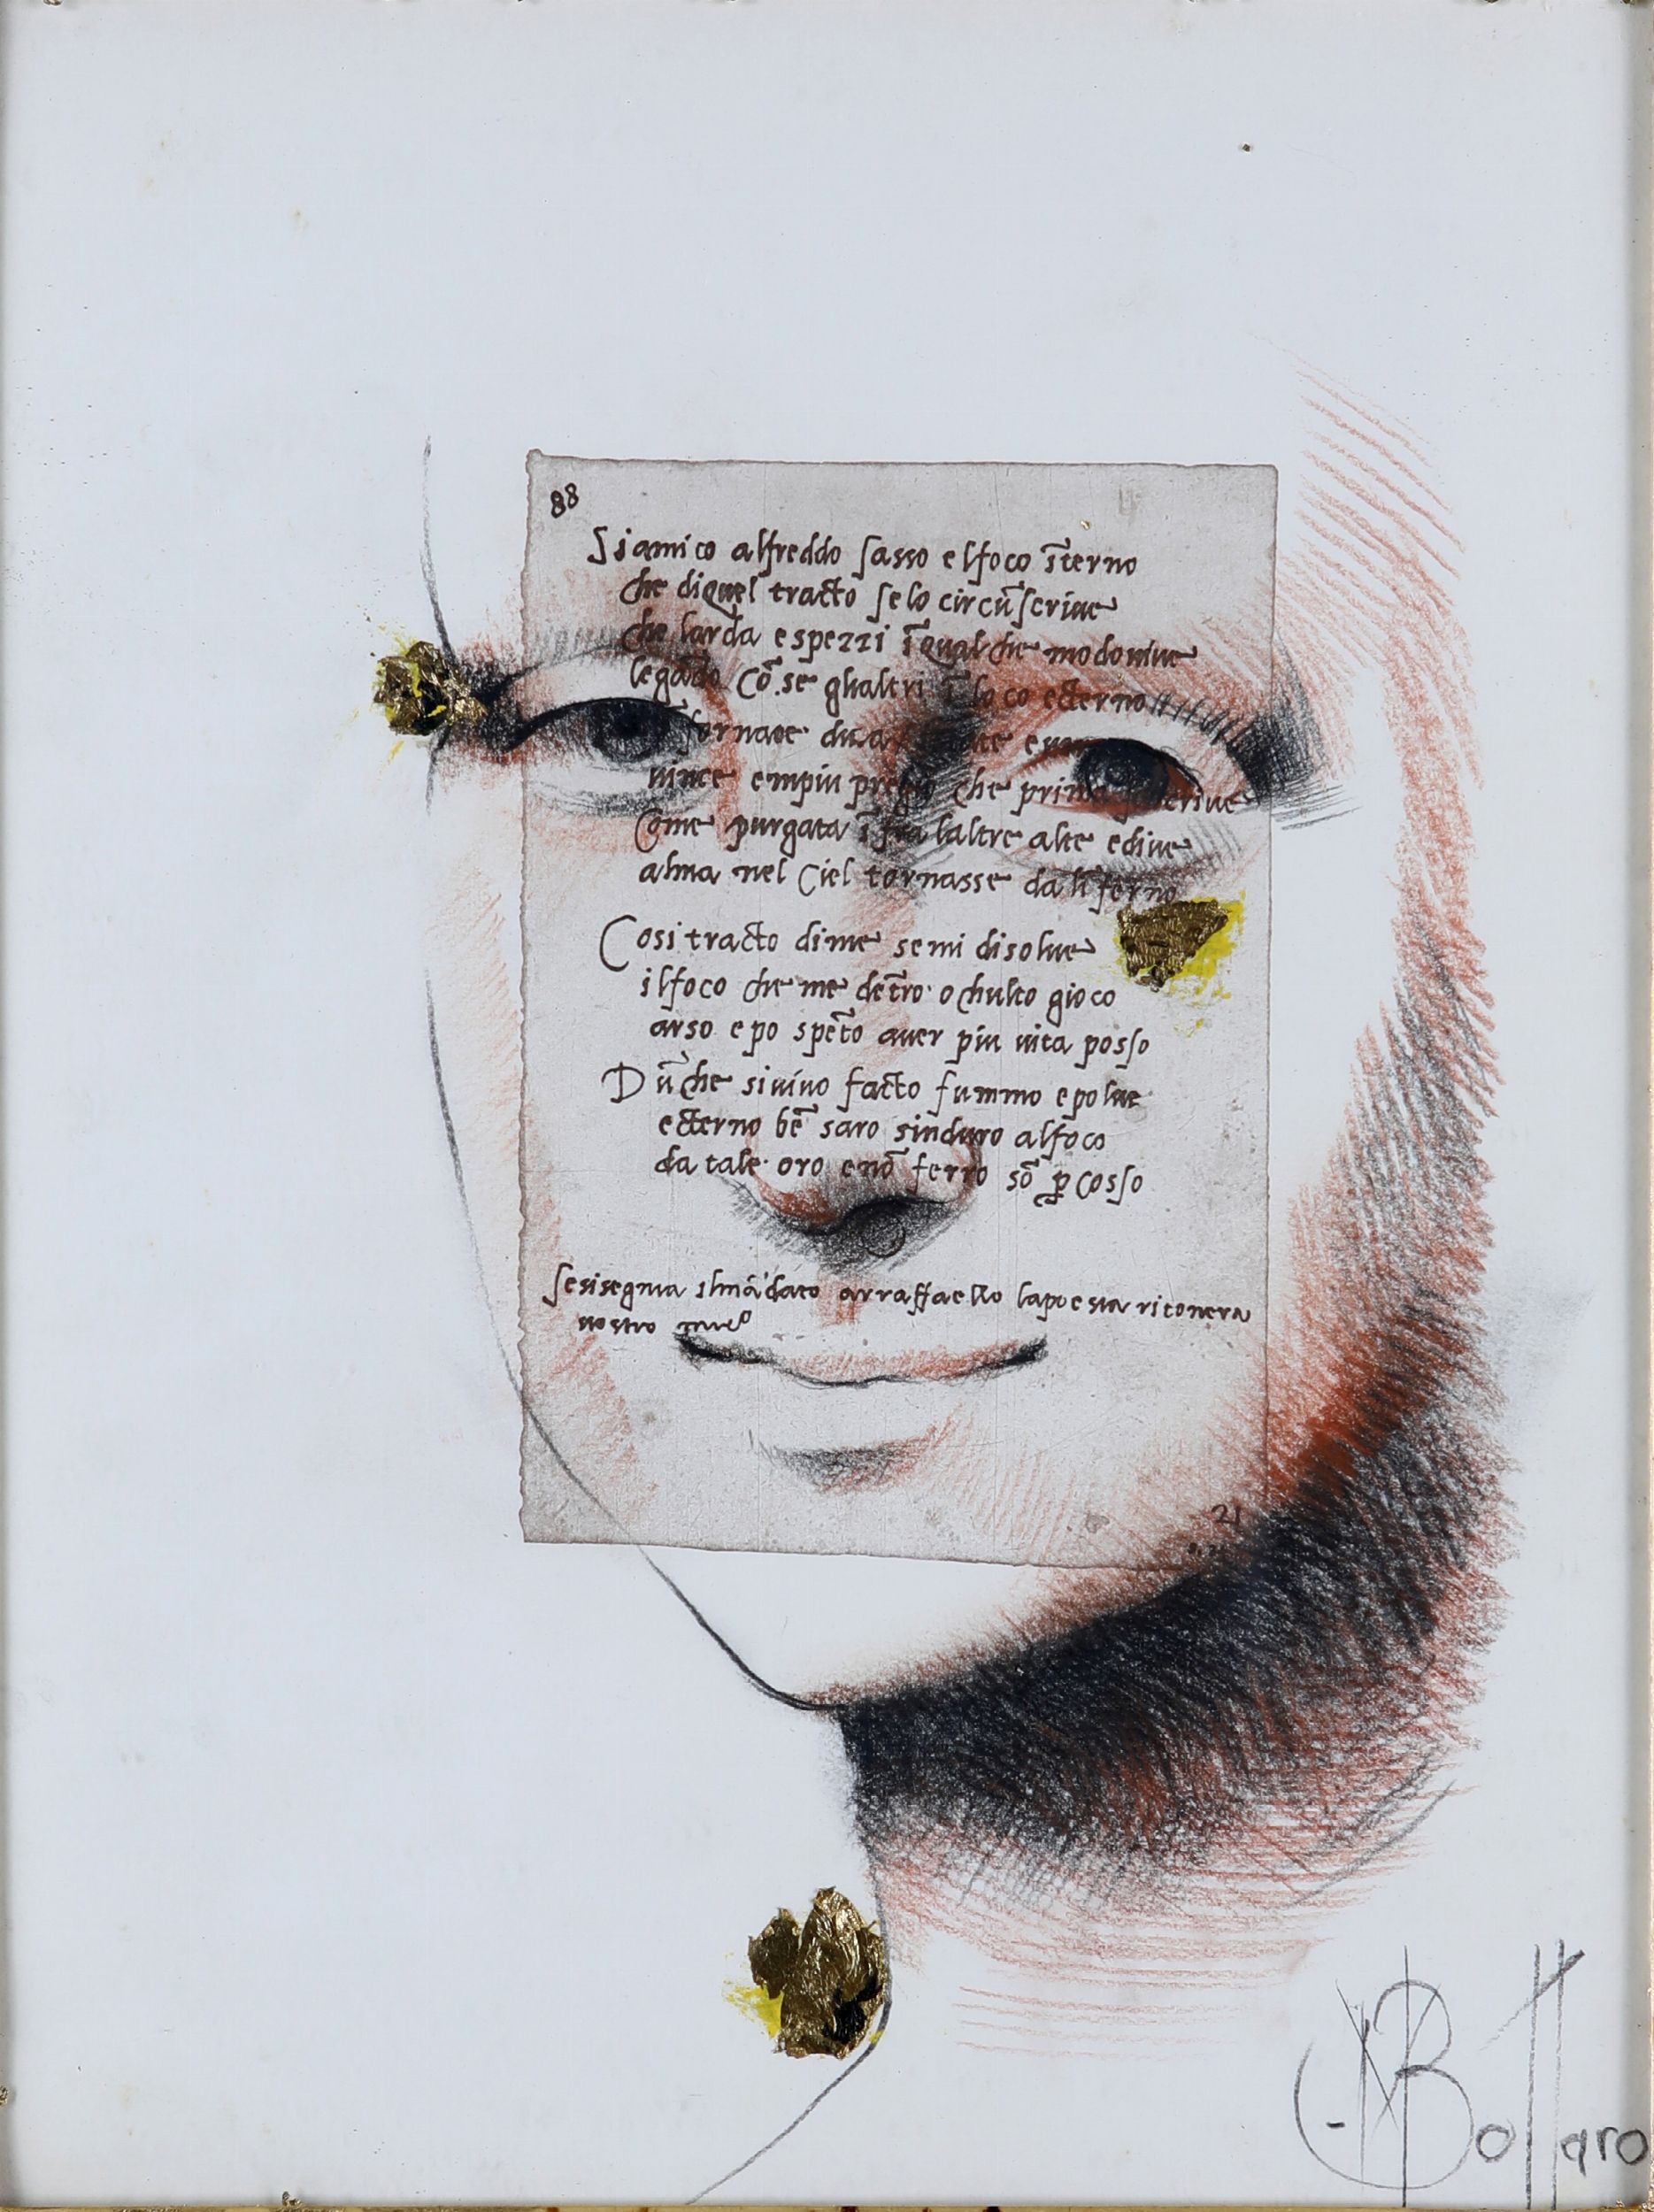 88
Siamico alfreddo sasso elfoco īterno
che diquel tracto selo circūscriue
che larda espezzi īqualche modouiue
legādo cō.se glialtri ī loco ecterno
fornace
uince empiu pregio che prima
Come purgata ī fra laltre alte ediue
alma nel Ciel tornasse da līferno
Cosi tracto dime semi disolue
ilfoco che me dētro ochulto gioco
arso epo spēto auer piu uita posso
Dūche siuiuo facto fummo epolue
ecterno bē saro sinduro alfoco
da tale oro enō ferro sō ꝑcosso
Sesisegnia ilmādato arraffaello lapoesia ritonera
nostro
21
Bottaro